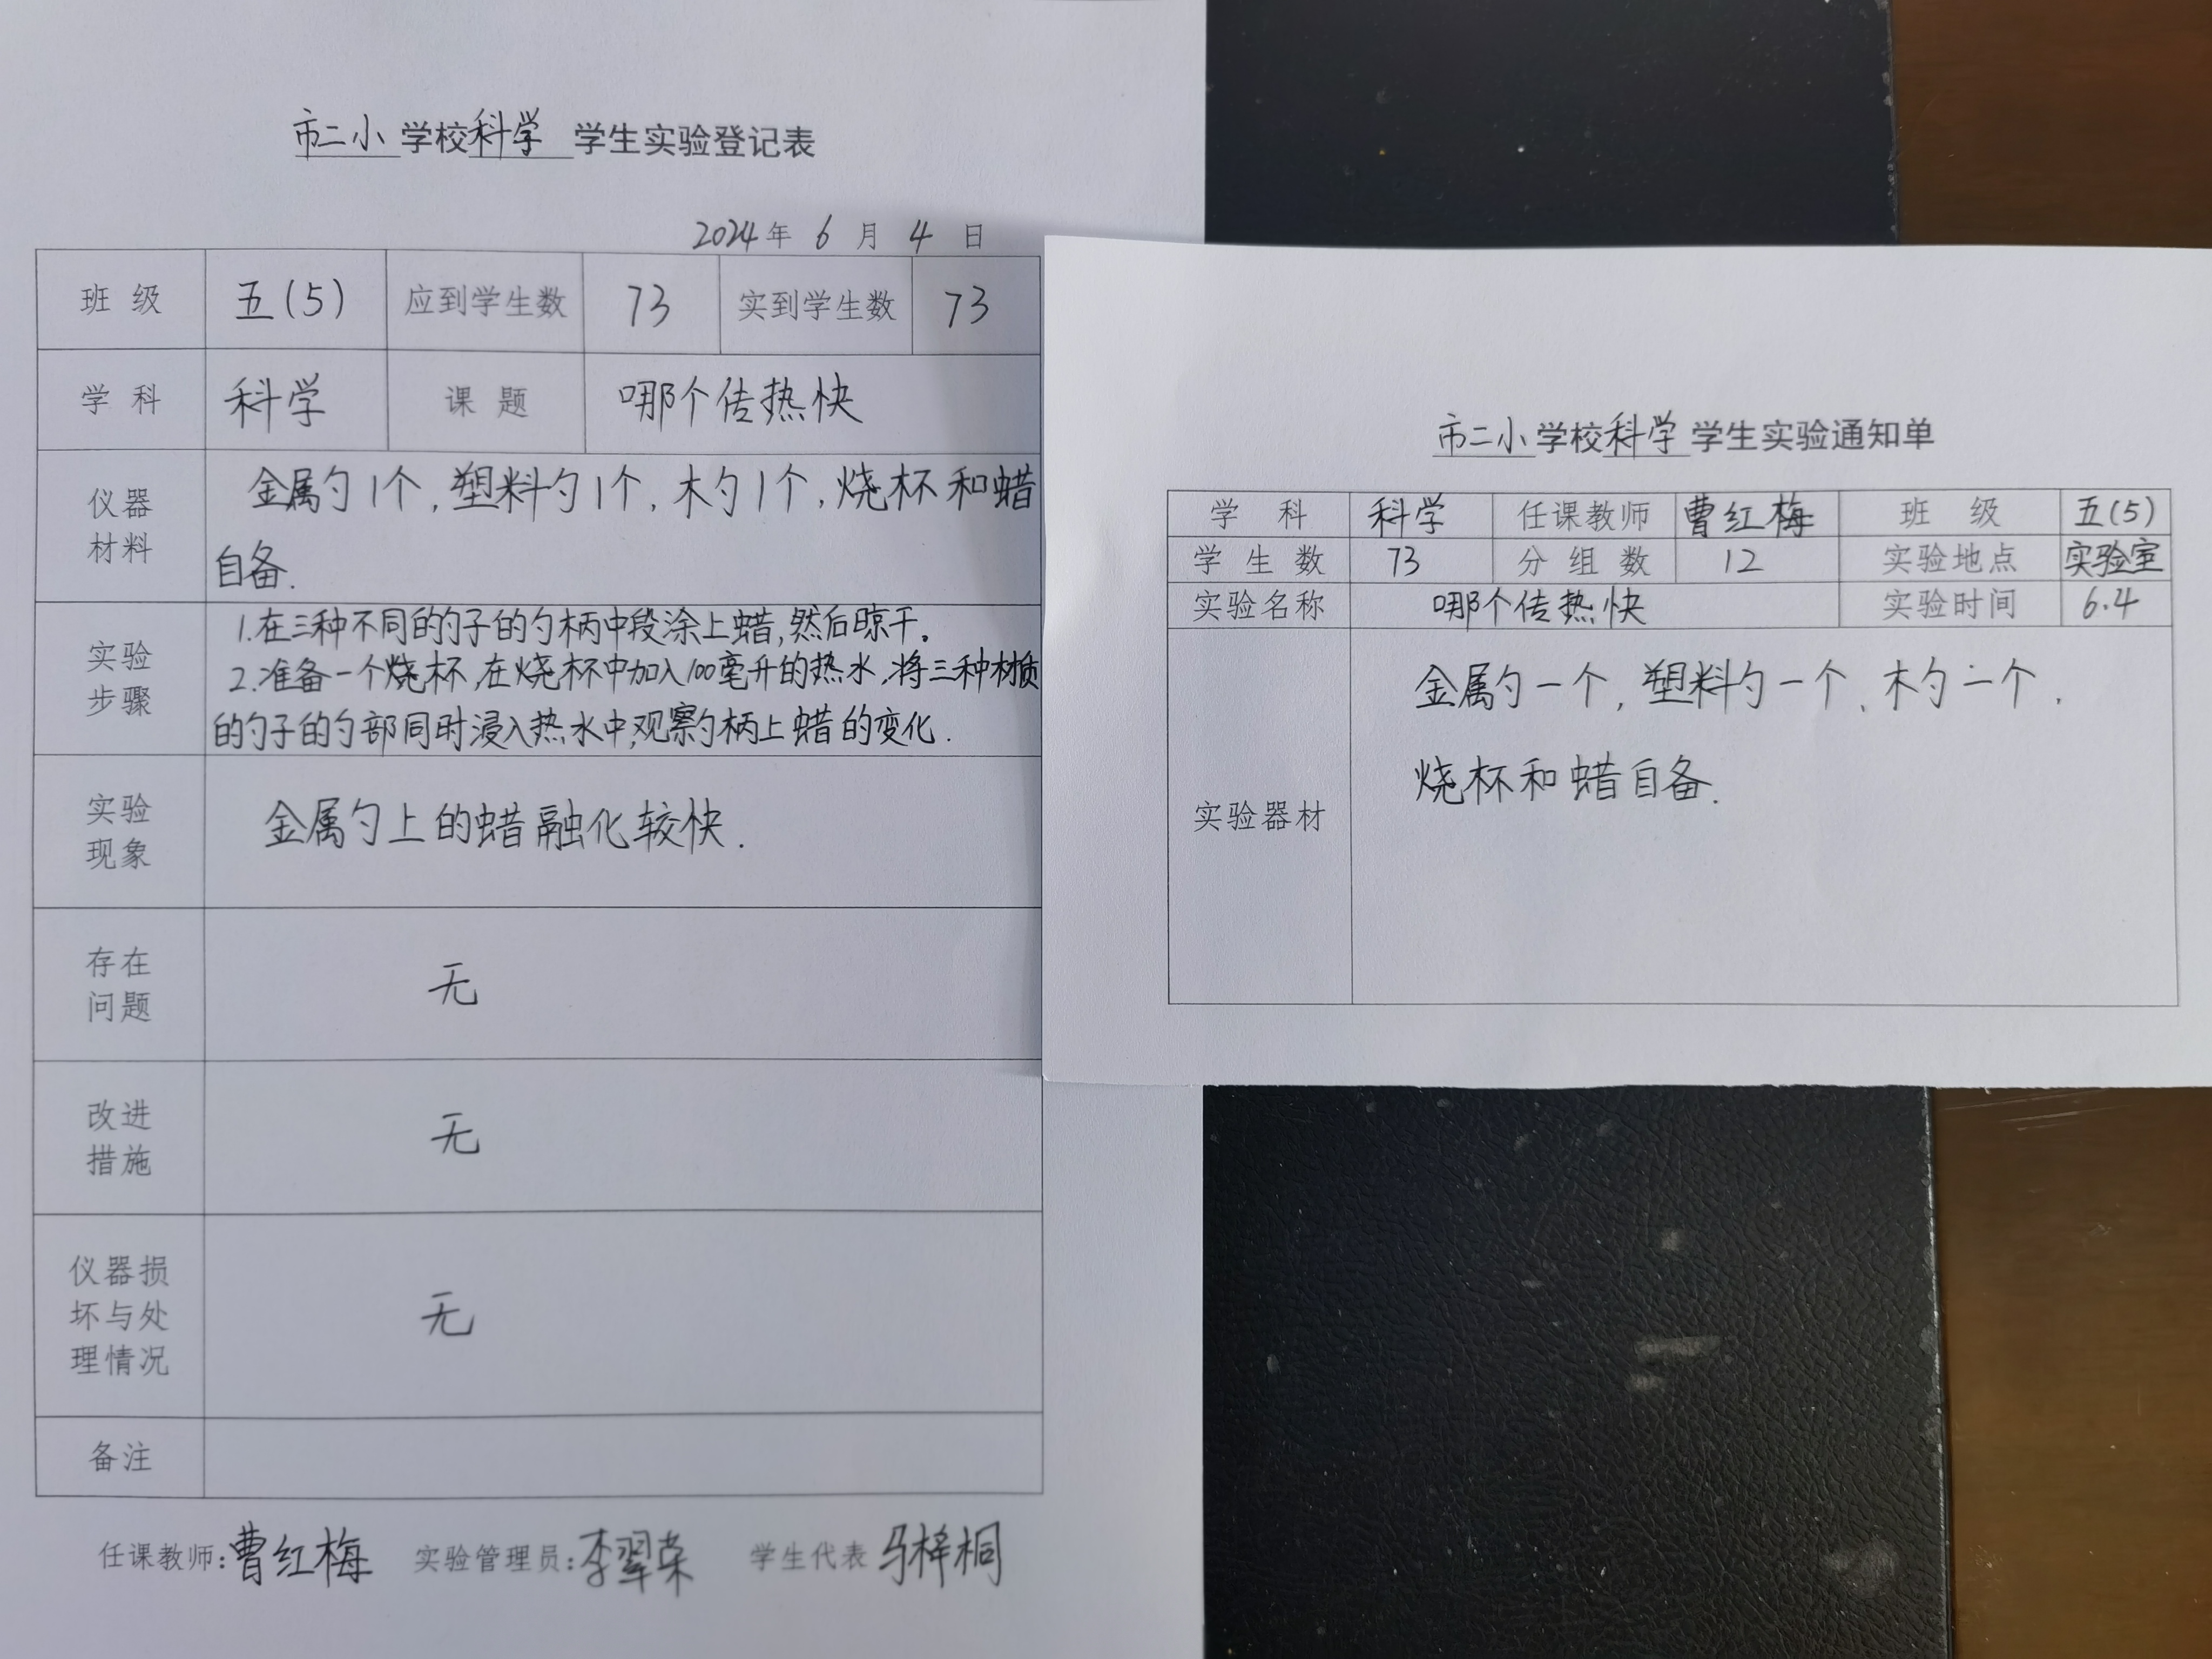 市二小 学校 科学 学生实验登记表
2024年 6 月 4 日
班 级 五(5) 应到学生数 73 实到学生数 73
学 科 科学 课 题 哪个传热快
仪器
材料
金属勺1个,塑料勺1个,木勺1个,烧杯和蜡
自备.
实验
步骤
1.在三种不同的勺子的勺柄中段涂上蜡,然后晾干。
2.准备一个烧杯,在烧杯中加入100毫升的热水,将三种材质
的勺子的勺部同时浸入热水中,观察勺柄上蜡的变化.
实验
现象
金属勺上的蜡融化较快.
存在
问题
无
改进
措施
无
仪器损
坏与处
理情况
无
备注
任课教师:曹红梅 实验管理员:李翠荣 学生代表 马梓桐
市二小 学校 科学 学生实验通知单
学 科 科学 任课教师 曹红梅 班 级 五(5)
学 生 数 73 分 组 数 12 实验地点 实验室
实验名称 哪个传热快 实验时间 6.4
实验器材
金属勺一个,塑料勺一个、木勺一个.
烧杯和蜡自备.